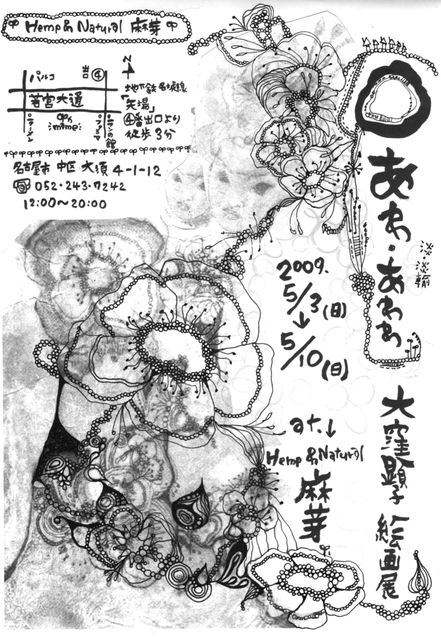 Hemp & Natural 麻芽
パルコ
出④
若宮大通
地下鉄名城線
「矢場」
④番出口より
徒歩3分
名古屋市中区大須4-1-12
052・243・7242
12:00〜20:00
あわ・あわわ
淡 淡輪
2009.
5/3(日)
↓
5/10(日)
大窪顕子 絵画展
at.↓
Hemp & Natural
麻芽